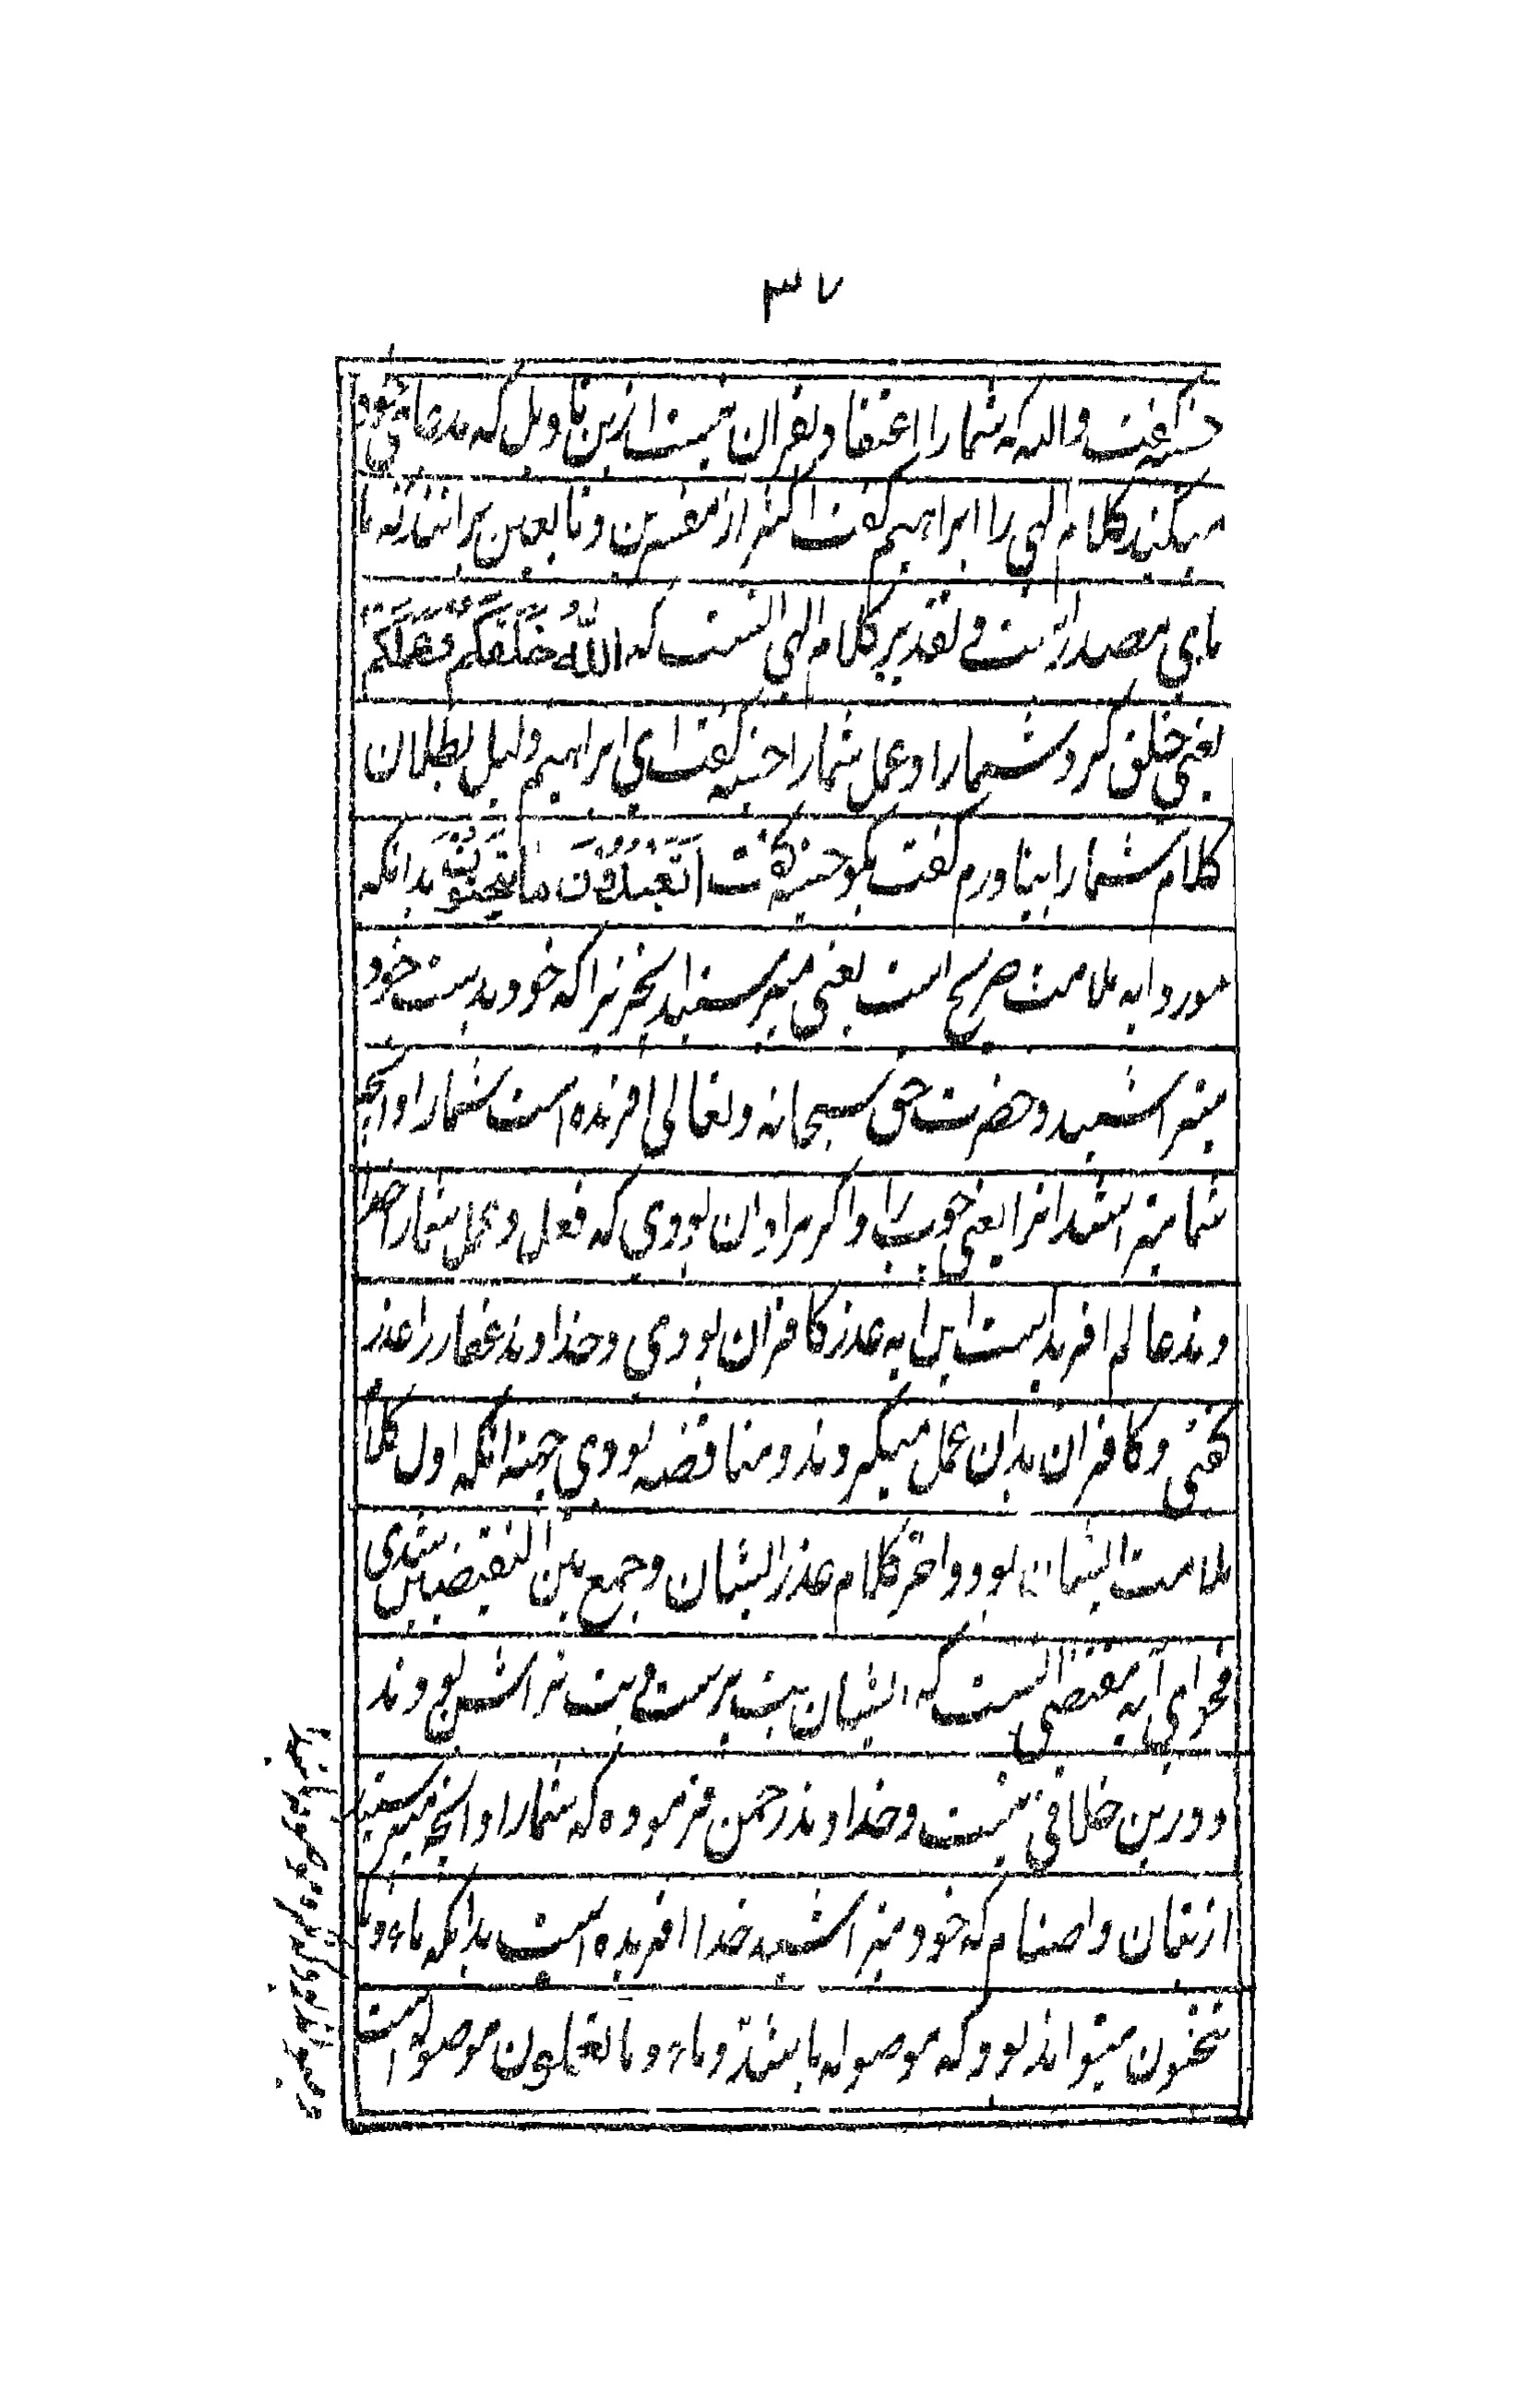 ۳۷
حسنیه گفت والله که شما را اعتقاد بقرآن نیست ازین تاویل که بمدعای خود
میکنید کلام الهی را ابراهیم گفت اکثر از مفسرین و تابعین برانند که ما
مای مصدر است و تقدیر کلام الهی انست که الله خلقکم وعملکم
یعنی خلق کرد شما را و عمل شما را حسنیه گفت ای ابراهیم دلیل بطلان
کلام شما را بیاورم گفت بگو حسنیه گفت اتعبدون ما تنحتون بدانکه
مورد ایه ملامت صریح است یعنی میپرستید چیزیرا که خود بدست خود
میتراشید و حضرت حق سبحانه و تعالی افرنده است شما را و آنچه
شما میتراشید انرا یعنی چوب را و اگر مراد ان بودی که فعل و عمل شما را خدا
وند عالم افریداست این ایه عذر کافران بودی و خداوند غفار را عذر
گفتی و کافران بدان عمل میکردند و مناقضه بودی چنانکه اول کلام
ملامت ایشان بود و اخر کلام عذر ایشان و جمع بین النقیضین شدی
فحوای آیه مقتضی انست که ایشان بت پرست و بت تراش بودند
و درین خلافی نیست و خداوند رحمن فرموده که شما را و آنچه میپرستید
از بتان و اصنام که خود میتراشید خدا افریده است بدانکه ماء و ما
تنحتون میتواند بود که موصوله باشد و ماء و ما تعملون موصوله است